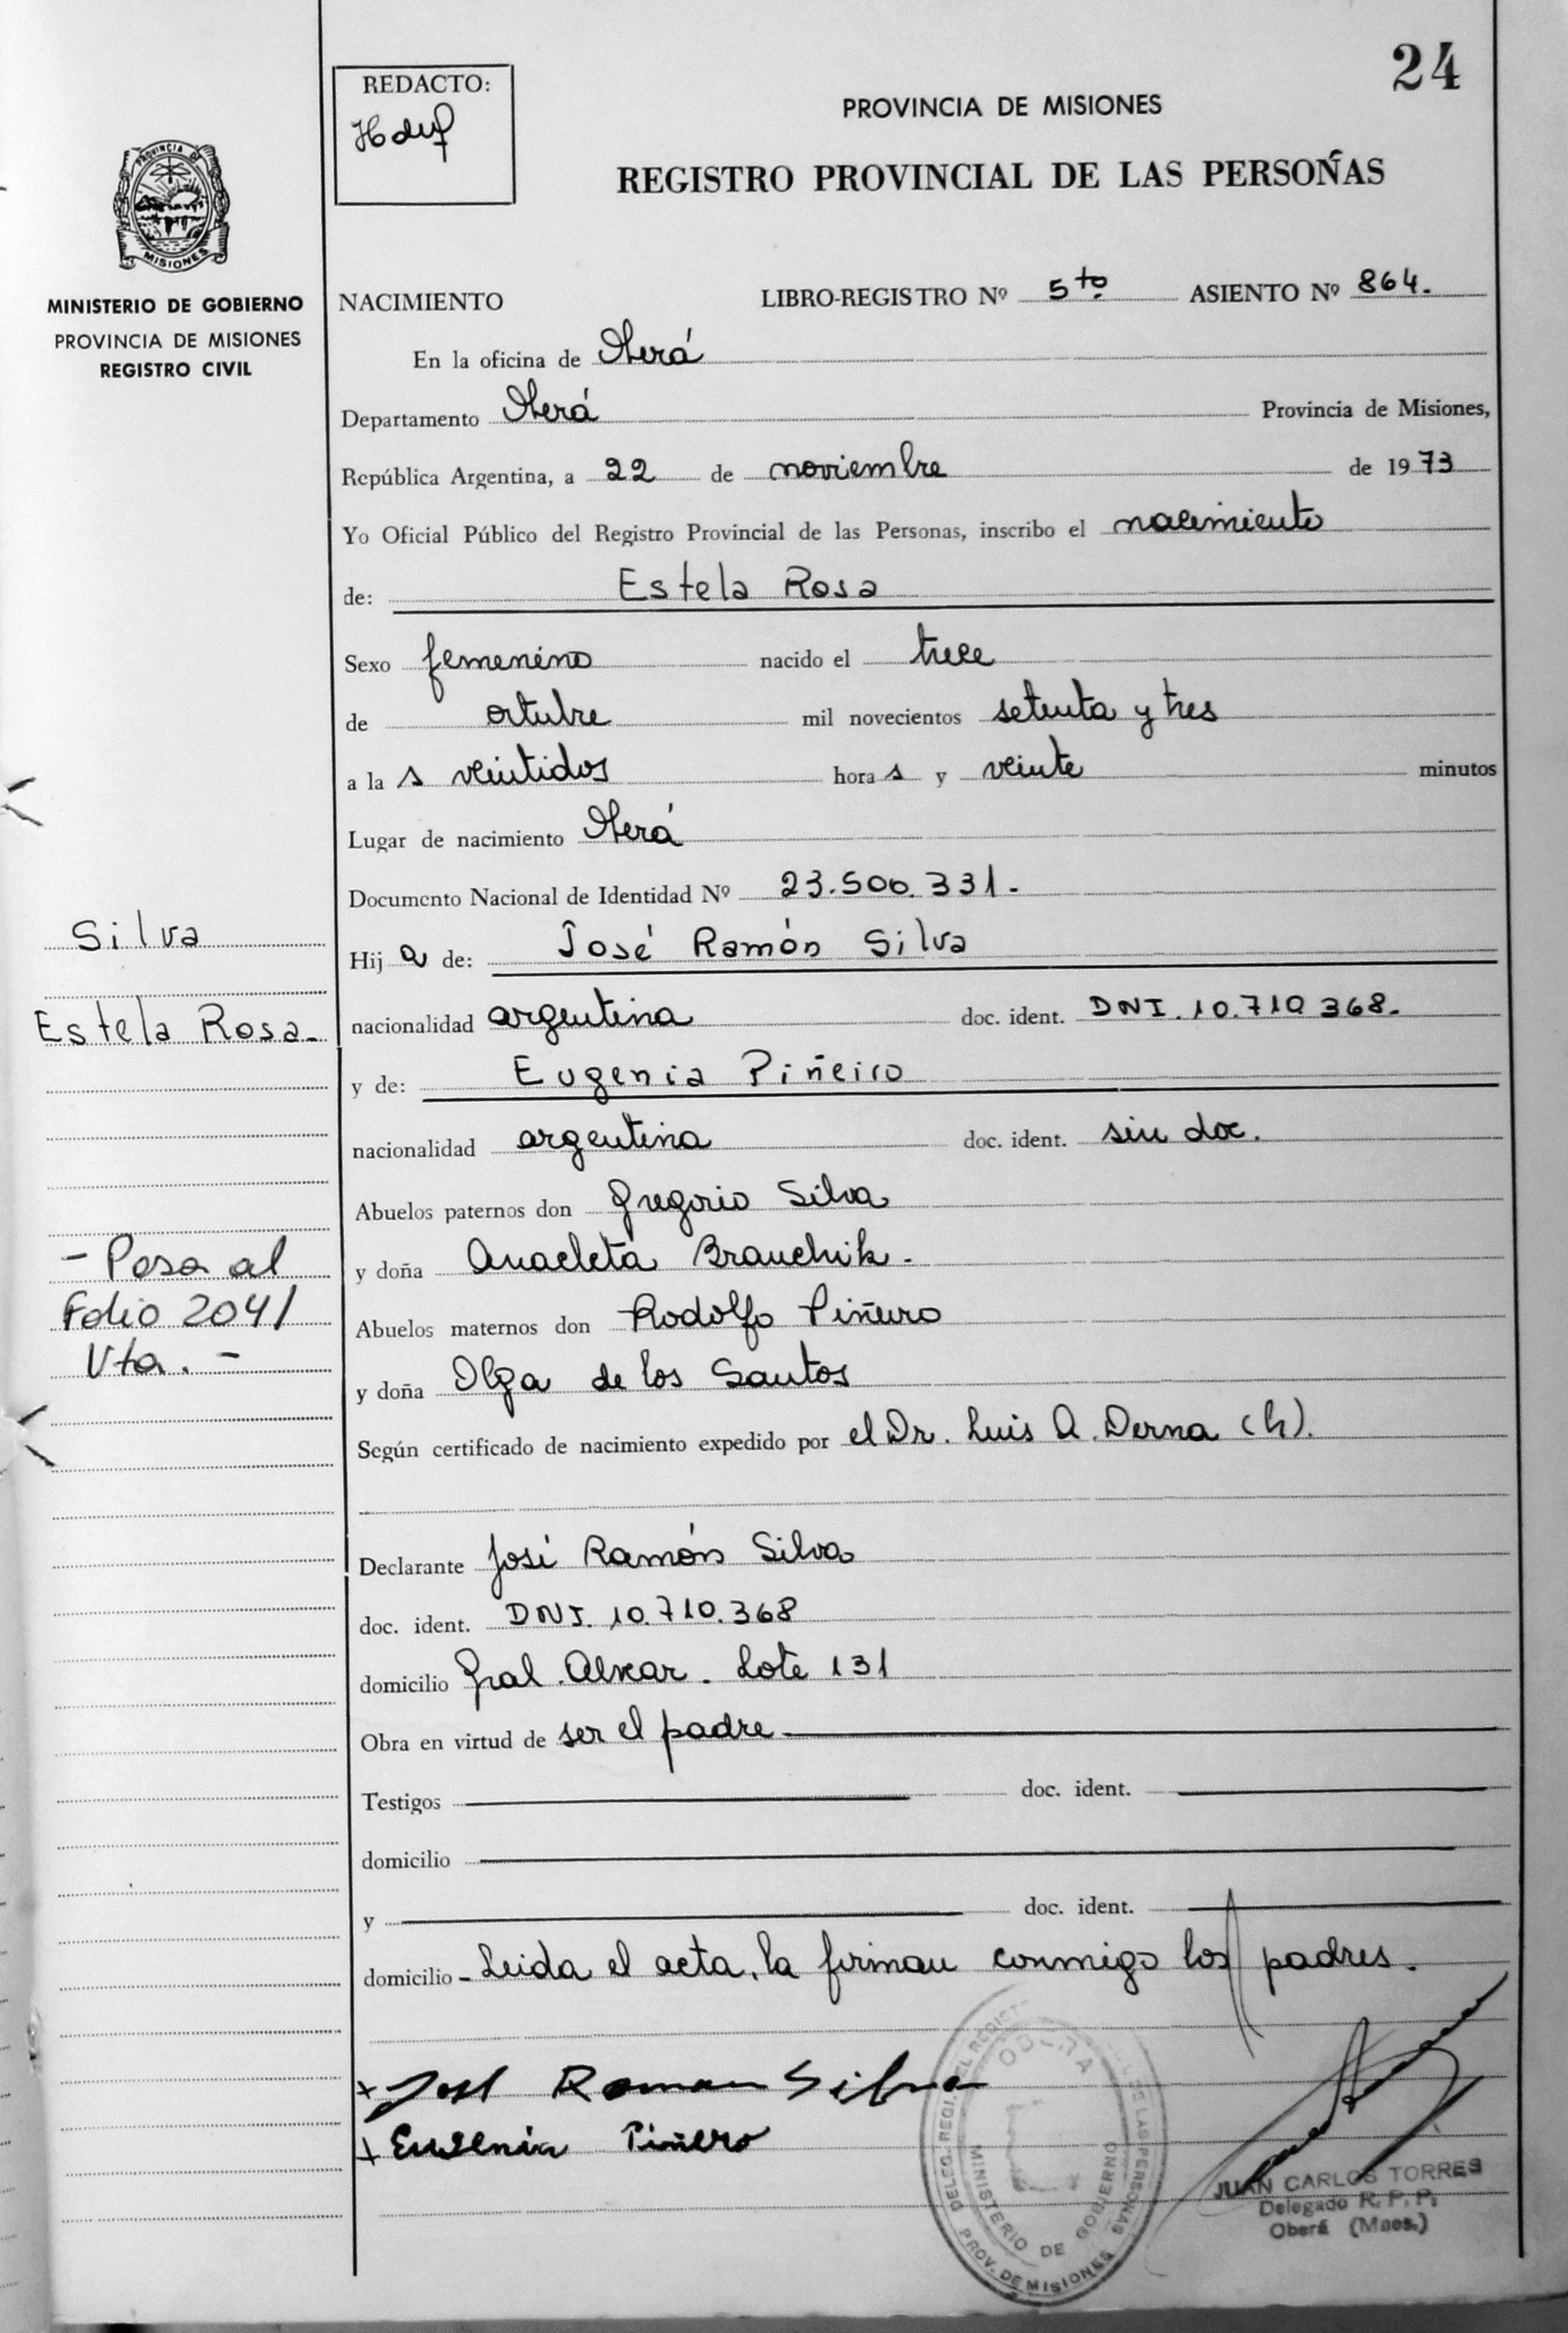 24
REDACTO:
PROVINCIA DE MISIONES
REGISTRO PROVINCIAL DE LAS PERSOÑAS
PROVINCIA DE
MISIONES
MINISTERIO DE GOBIERNO
PROVINCIA DE MISIONES
REGISTRO CIVIL
NACIMIENTO LIBRO-REGISTRO Nº 5to. ASIENTO Nº 864.
En la oficina de Oberá
Departamento Oberá Provincia de Misiones,
República Argentina, a 22 de noviembre de 1973
Yo Oficial Público del Registro Provincial de las Personas, inscribo el nacimiento
de: Estela Rosa
Sexo femenino nacido el trece
de octubre mil novecientos setenta y tres
a la s veintidos hora s y veinte minutos
Lugar de nacimiento Oberá
Documento Nacional de Identidad Nº 23.500.331.
Silva
Estela Rosa
Hij a de: José Ramón Silva
nacionalidad argentina doc. ident. DNI. 10.710 368.
y de: Eugenia Piñeiro
nacionalidad argentina doc. ident. sin doc.
Abuelos paternos don Gregorio Silva
y doña Anacleta Branchik.
Abuelos maternos don Rodolfo Piñeiro
y doña Olga de los Santos
- Pasa al
Folio 2041
Vta. -
Según certificado de nacimiento expedido por el Dr. Luis A. Derna (h).
Declarante José Ramón Silva
doc. ident. DNI. 10.710.368
domicilio Gral. Alvear. Lote 131
Obra en virtud de ser el padre
Testigos doc. ident.
domicilio
y doc. ident.
domicilio - Leida el acta, la firman conmigo los padres.
x José Ramon Silva
x Eugenia Piñero
OBERA
MINISTERIO DE GOBIERNO
PROV. DE MISIONES
JUAN CARLOS TORRES
Delegado R. P. P.
Oberá (Mnes.)